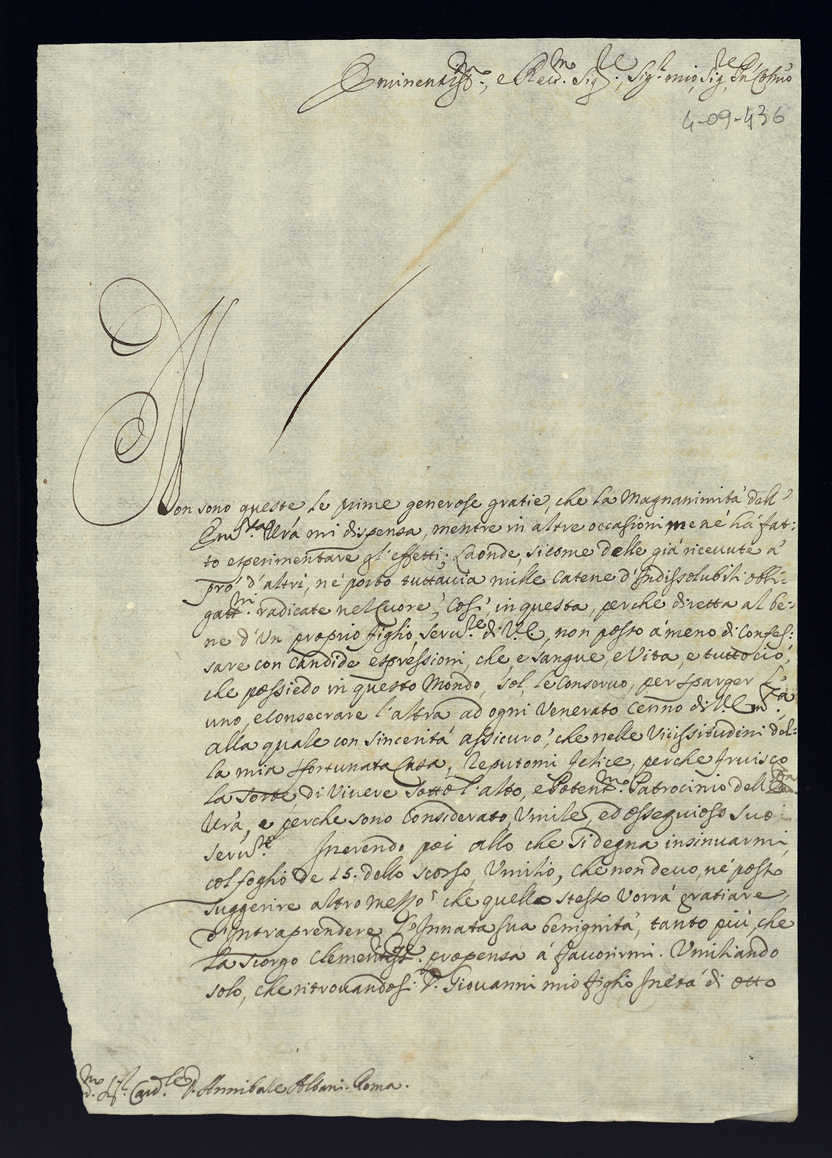 Eminentiss.mo, e Reu.mo Sig.re, Sig.r mio, Sig.re
4-09-436
Non sono queste le prime generose gratie, che la Magnanimità dell'
Em.za V.rà mi dispensa, mentre in altre occasioni me ne hà fat:
to esperimentare gl'effetti; Laonde, sicome delle già riceuute à
prò d'altri, nè porto tuttauia mille Catene d'Indissolubili obbli:
gatt.ni radicate nel Cuore; Così, in questa, perche diretta al be:
ne d'Un proprio figlio, seru.le di V.E, non posso à meno di Confes:
sare con Candide espressioni, che, e sangue, e Vita, e tuttociò,
che possiedo in questo Mondo, sol, le Conseruo, per sparger l'
uno, e Consecrare l'altra ad ogni Venerato Cenno di V. Em.za,
alla quale con sincerità assicuro, che nelle Vicissitudini del:
la mia sfortunata Casa, Reputomi felice, perche fruisco
la Sorte di Viuere sotto l'alto, e Potent.mo Patrocinio dell'
V.rà, e perche sono Considerato, Vmile, ed ossequioso suo
seru.re Inerendo poi allo che si degna insinuarmi,
col foglio de 15. dello scorso Vmilio, che non deuo, nè posso
suggerire altro messo che quello stesso Vorrà gratiare,
d'Intraprendere l'Innata sua benignità, tanto più, che
la scorgo Clementiss.ma propensa à fauorirmi. Vmiliando
solo, che ritrouandosi D. Giouanni mio figlio In età di otto
Card.le D. Annibale Albani. Roma.